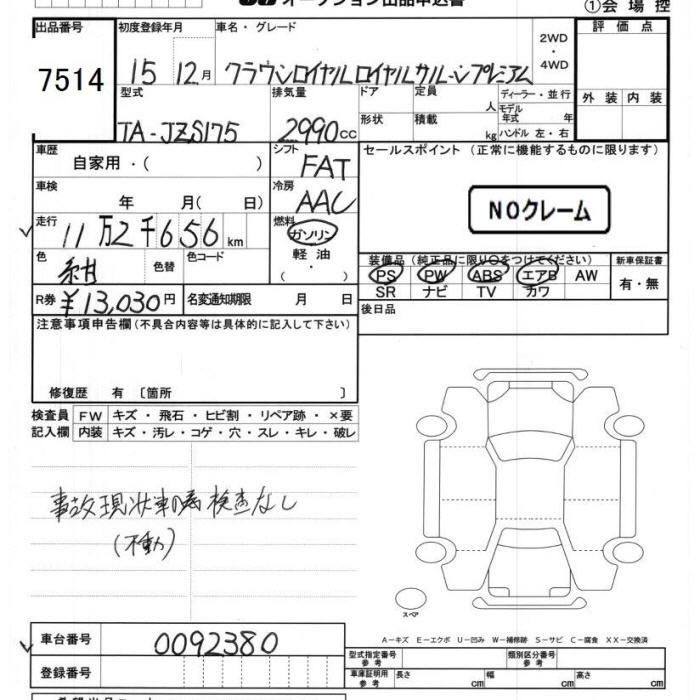 オークション出品申込書
①会場控
出品番号
7514
初度登録年月
15 12月
車名・グレード
クラウンロイヤル ロイヤルサルーンプレミアム
2WD
・
4WD
評価点
外装 内装
型式
TA-JZS175
排気量
2990cc
ドア
形状
定員
人
積載
kg
ディーラー・並行
モデル年式 年
ハンドル 左・右
車歴
自家用・( )
シフト
FAT
セールスポイント (正常に機能するものに限ります)
NOクレーム
車検
年 月( 日)
冷房
AAC
走行
11万2千656km
燃料
ガソリン
軽油
( ・ )
色
紺
色替
色コード
装備品 (純正品に限り○をつけてください)
新車保証書
PS PW ABS エアB AW
SR ナビ TV カワ
有・無
R券 ¥13,030円
名変通知期限 月 日
後日品
注意事項申告欄(不具合内容等は具体的に記入して下さい)
修復歴 有 〔箇所 〕
検査員 FW キズ・飛石・ヒビ割・リペア跡・×要
記入欄 内装 キズ・汚レ・コゲ・穴・スレ・キレ・破レ
事故現状車の為検査なし
(不動)
スペア
車台番号 0092380
登録番号
A-キズ E-エクボ U-凹み W-補修跡 S-サビ C-腐食 XX-交換済
型式指定番号
参考
類別区分番号
参考
車庫証明用
参考
長さ cm 幅 cm 高さ cm